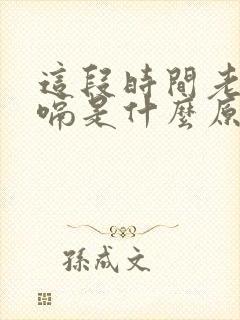 這段時間老
嗝是什麼原
孫成文